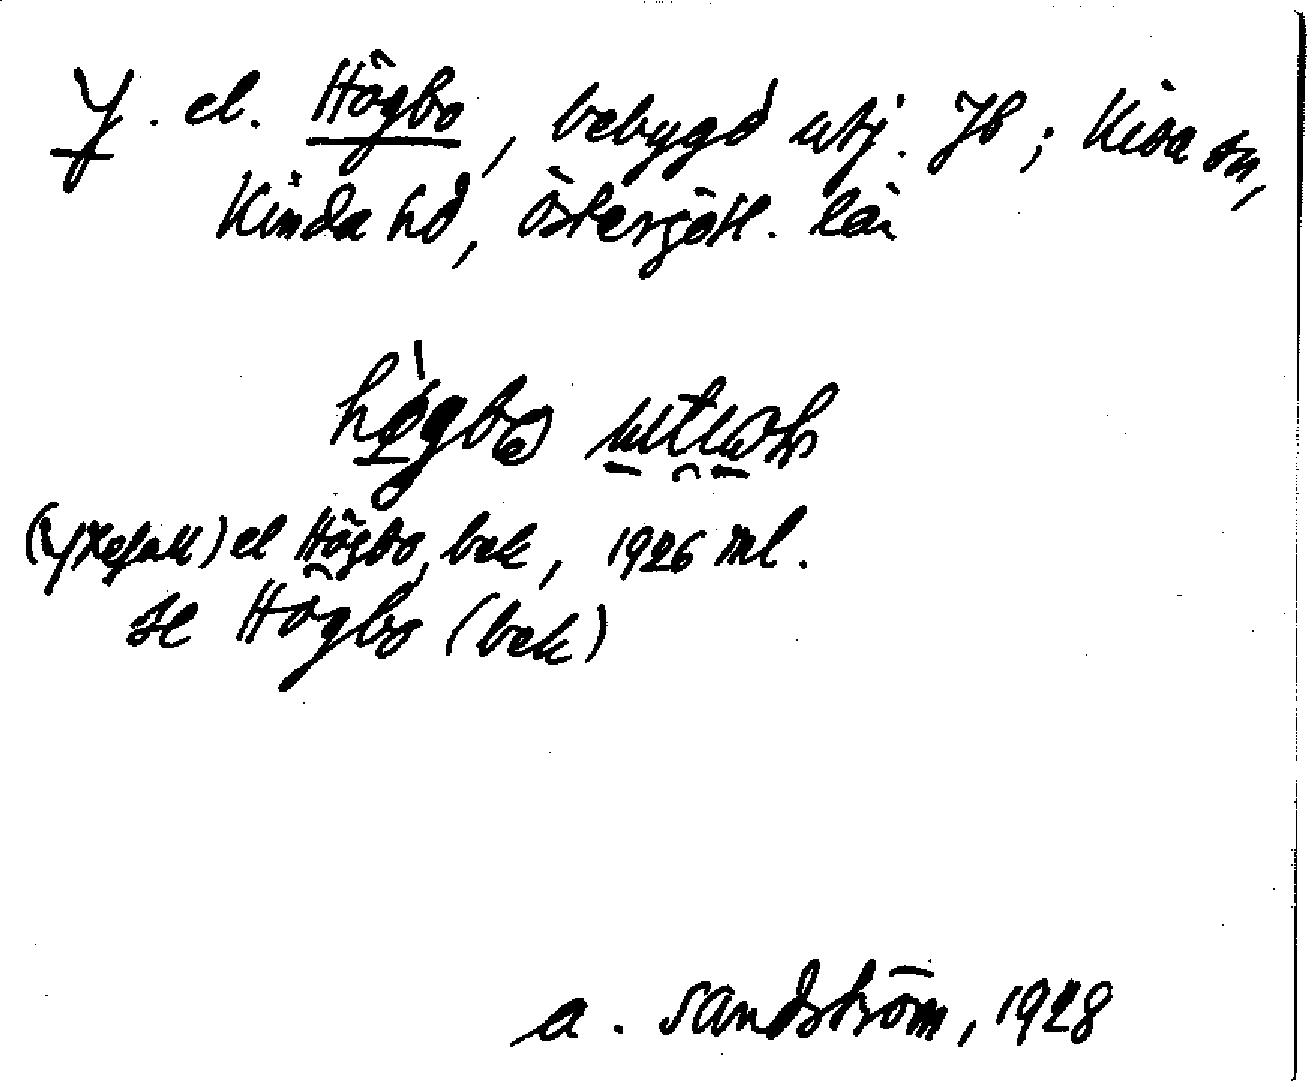 Y. el. Högbo, bebygd utj. Jb; Kisa sn,
Kinda hd, Östergötl. län
högbo
(Yxefall) el Högbo, bek, 1926 ml.
se Högbo (bek)
A. Sandström, 1928